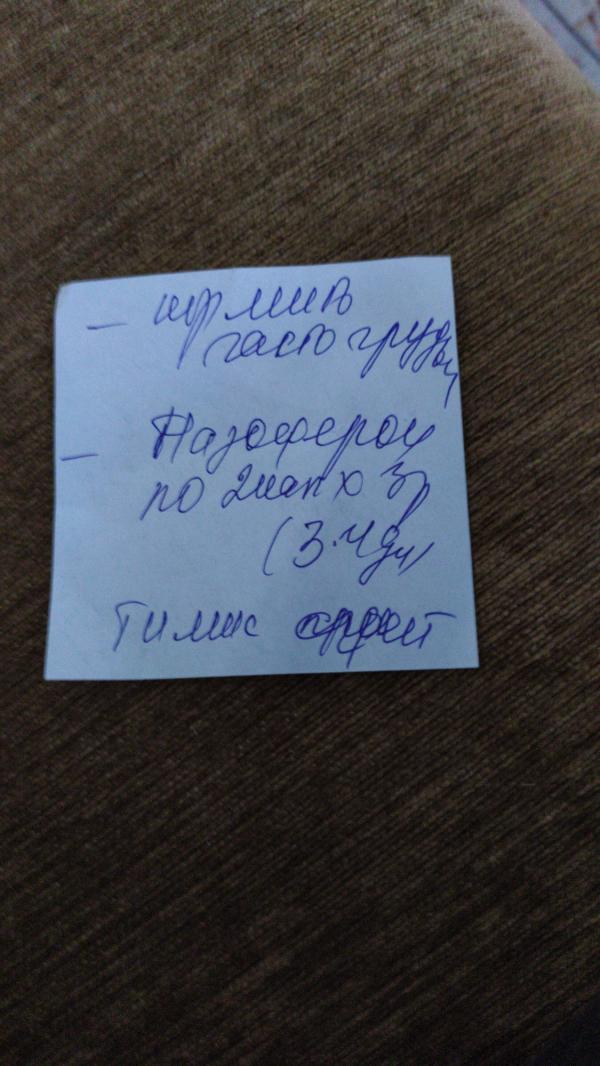 - кормить
часто грудью
- Назоферон
по 2 кап х 3 р
(3-4 дн)
Тимис